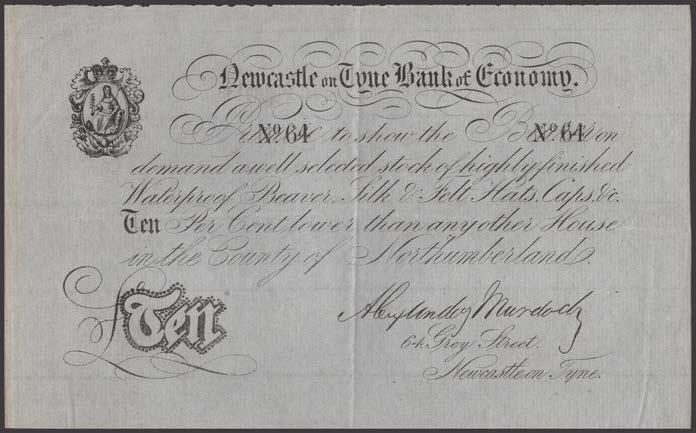 Newcastle on Tyne Bank of Economy.
Promise to show the Bearer on
No. 64 No. 64
demand a well selected stock of highly finished
Waterproof Beaver, Silk & Felt Hats, Caps, &c.
Ten Per Cent lower than any other House
in the County of Northumberland.
Ten
Alexander Murdoch
64 Grey Street.
Newcastle on Tyne.